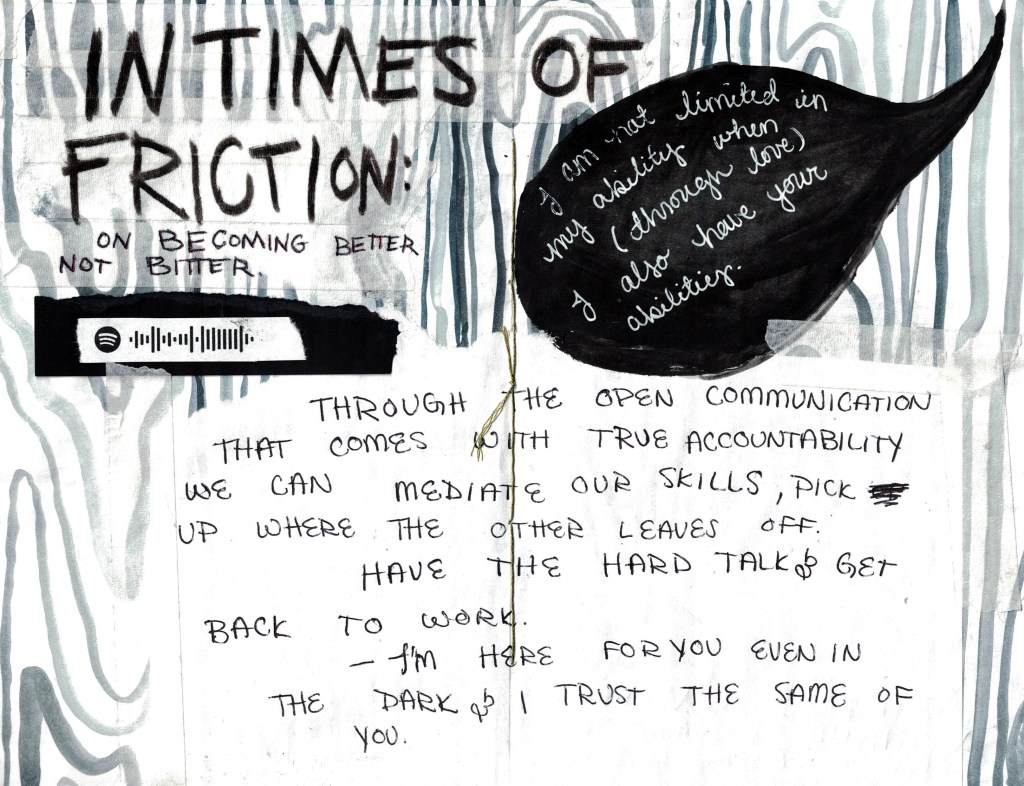 IN TIMES OF
FRICTION:
ON BECOMING BETTER
NOT BITTER.
I am not limited in
my ability when
(through love)
I also have your
abilities.
THROUGH THE OPEN COMMUNICATION
THAT COMES WITH TRUE ACCOUNTABILITY
WE CAN MEDIATE OUR SKILLS, PICK
UP WHERE THE OTHER LEAVES OFF.
HAVE THE HARD TALK & GET
BACK TO WORK.
— I'M HERE FOR YOU EVEN IN
THE DARK & I TRUST THE SAME OF
YOU.